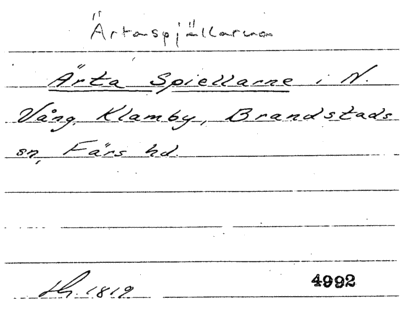 Ärtaspjällarna
Ärta Spiellarne i N.
Vång Klamby, Brandstads
sn, Färs hd.
Sk. 1819 4992